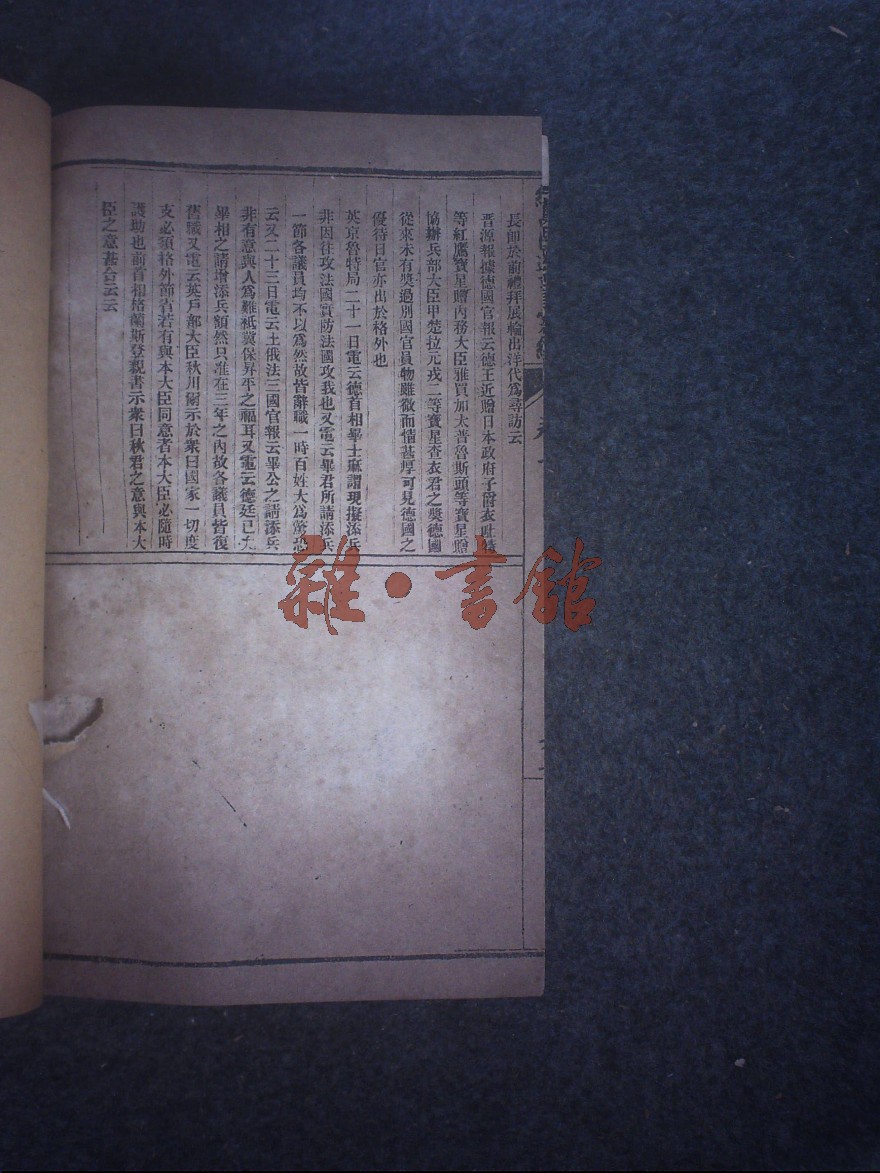 長卽於前禮拜展輪出洋代爲尋訪云
晋源報據德國官報云德王近贈日本政府子爵衣
等紅鷹寶星贈內務大臣雅買加太普魯斯頭等寶星贈
協辦兵部大臣甲楚拉元戎二等寶星查衣君之獎德國
從來未有獎過別國官員物雖微而情甚厚可見德國之
優待日官亦出於格外也
英京魯特局二十一日電云德首相畢士麻謂現擬添兵
非因往攻法國實防法國攻我也又電云畢君所請添兵
一節各議員均不以爲然故皆辭職一時百姓大爲驚恐
云又二十三日電云土俄法三國官報云畢公之請添兵
非有意與人爲難祗冀保昇平之福耳又電云德廷已允
畢相之請增添兵額然只准在三年之內故各議員皆復
舊職又電云英戶部大臣秋川爾示於衆曰國家一切度
支必須格外節省若有與本大臣同意者本大臣必隨時
護助也前首相格蘭斯登親書示衆曰秋君之意與本大
臣之意甚合云云
雜·書館